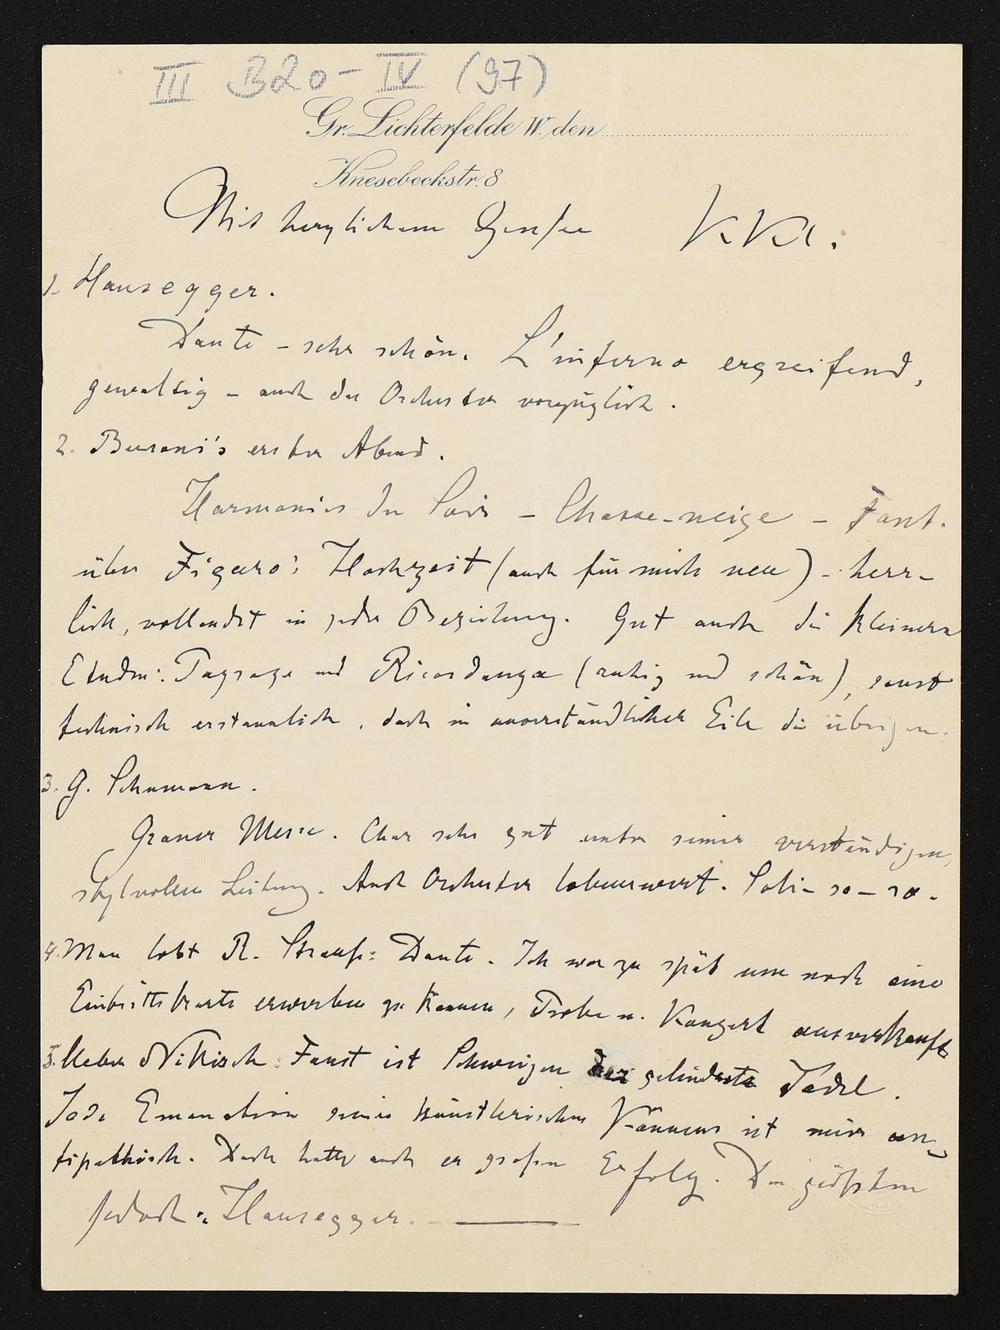 III B20 - IV (97)
Gr. Lichterfelde W. den
Knesebeckstr. 8
Mit herzlichem Grusse KKl.
1. Hausegger.
Dante - sehr schön. L'inferno ergreifend,
gewaltig - auch das Orchester vorzüglich.
2. Busoni's erster Abend.
Harmonies du Soir - Chasse-neige - Fant.
über Figaro's Hochzeit (auch für mich neu) - herr-
lich, vollendet in jeder Beziehung. Gut auch die kleinern
Etuden: Paysage und Ricordanza (ruhig und schön), sonst
technisch erstaunlich, doch in unverständlicher Eile die übrigen.
3. G. Schumann.
Graner Messe. Chor sehr gut unter seiner verständigen,
stylvollen Leitung. Auch Orchester lobenswert. Soli - so - so.
4. Man lobt R. Strauß: Dante. Ich war zu spät um noch eine
Eintrittskarte erwerben zu können, Probe u. Konzert ausverkauft
5. Ueber Nikisch: Faust ist Schweigen der gelindeste Tadel.
Jede Emanation seines künstlerischen Könnens ist mir an-
tipathisch. Doch hatte auch er großen Erfolg. Den größten
jedoch: Hausegger.